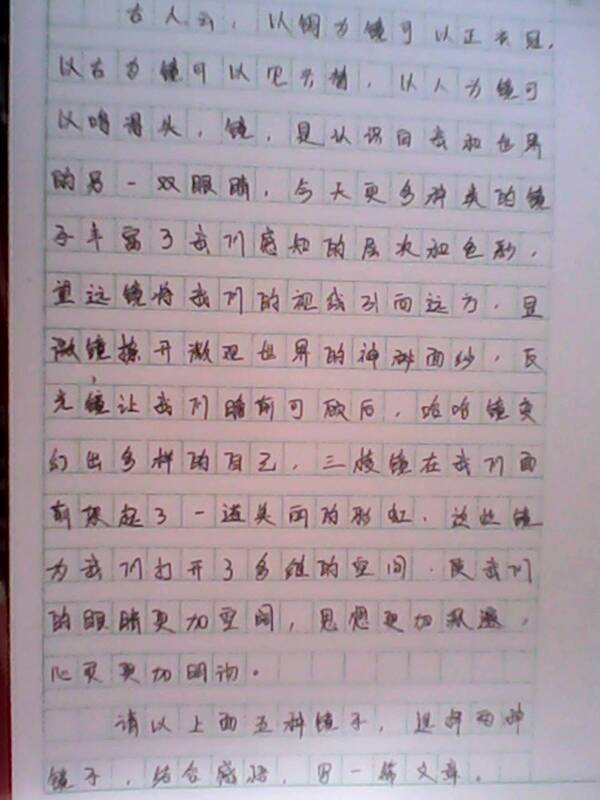 古人云，以铜为镜可以正衣冠，
以古为镜可以见兴替，以人为镜可
以明得失，镜，是认识自我和世界
的另一双眼睛，今天更多种类的镜
子丰富了我们感知的层次和色彩，
望远镜将我们的视线引向远方，显
微镜撩开微观世界的神秘面纱，反
光镜让我们瞻前可顾后，哈哈镜变
幻出多样的自己，三棱镜在我们面
前架起了一道美丽的彩虹，这些镜
为我们打开了多维的空间，使我们
的眼睛更加空阔，思想更加深邃，
心灵更加明询。
请以上面五种镜子，选择两种
镜子，结合感悟，写一篇文章。